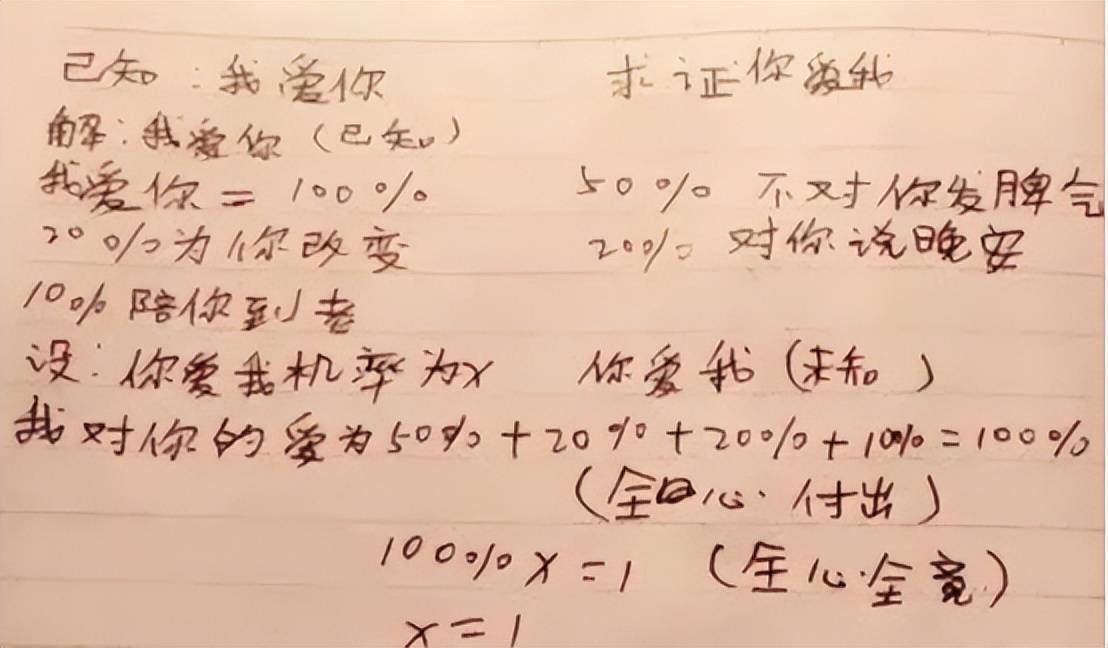 已知:我爱你 求证你爱我
解:我爱你(已知)
我爱你=100% 50%不对你发脾气
20%为你改变 20%对你说晚安
10%陪你到老
设:你爱我机率为x 你爱我(未知)
我对你的爱为50%+20%+20%+10%=100%
(全心·付出)
100%x=1 (全心·全意)
x=1